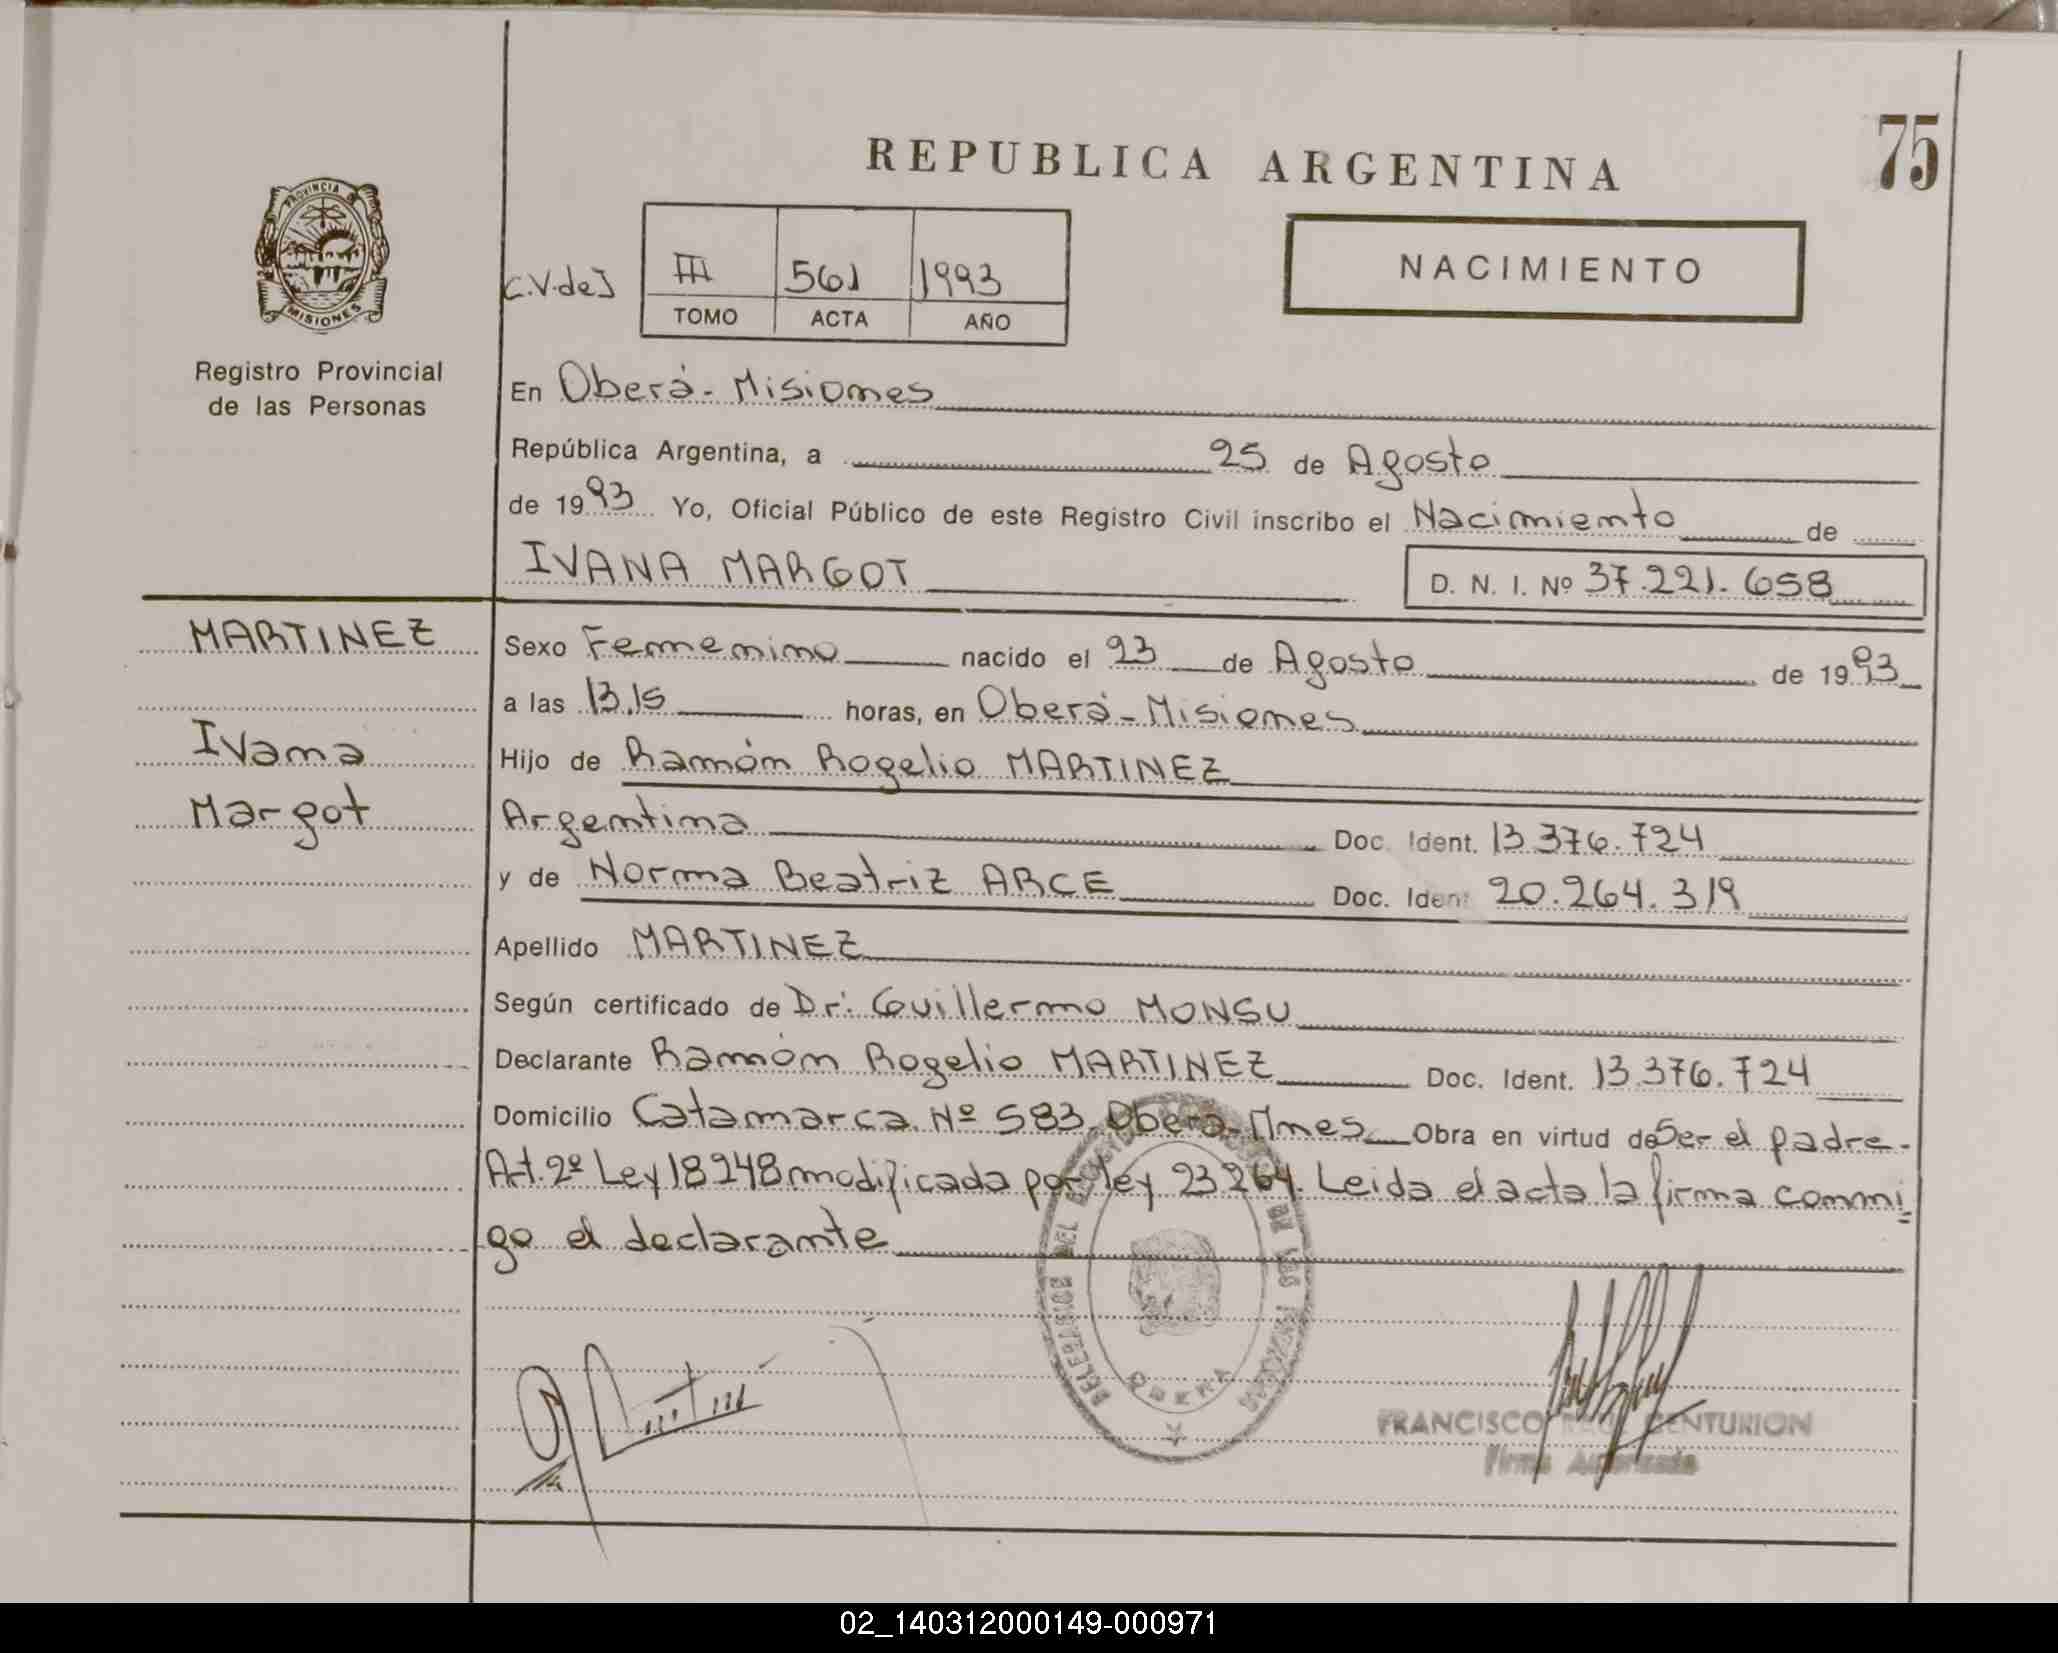 75
REPUBLICA ARGENTINA
NACIMIENTO
PROVINCIA
MISIONES
Registro Provincial
de las Personas
C.V.deJ
III 561 1993
TOMO ACTA AÑO
En Oberá - Misiones
República Argentina, a 25 de Agosto
de 1993 Yo, Oficial Público de este Registro Civil inscribo el Nacimiento de
IVANA MARGOT D. N. I. Nº 37.221.658
MARTINEZ
Ivana
Margot
Sexo Femenino nacido el 23 de Agosto de 1993
a las 13.15 horas, en Oberá - Misiones
Hijo de Ramón Rogelio MARTINEZ
Argentina Doc. Ident. 13.376.724
y de Norma Beatriz ARCE Doc. Ident 20.264.319
Apellido MARTINEZ
Según certificado de Dr: Guillermo MONSU
Declarante Ramón Rogelio MARTINEZ Doc. Ident. 13.376.724
Domicilio Catamarca Nº 583 Oberá - Mnes Obra en virtud de Ser el padre.
Art. 2º Ley 18248 modificada por ley 23264. Leida el acta la firma conmi
go el declarante
OBERA
FRANCISCO CENTURION
Firma Autorizada
02_140312000149-000971